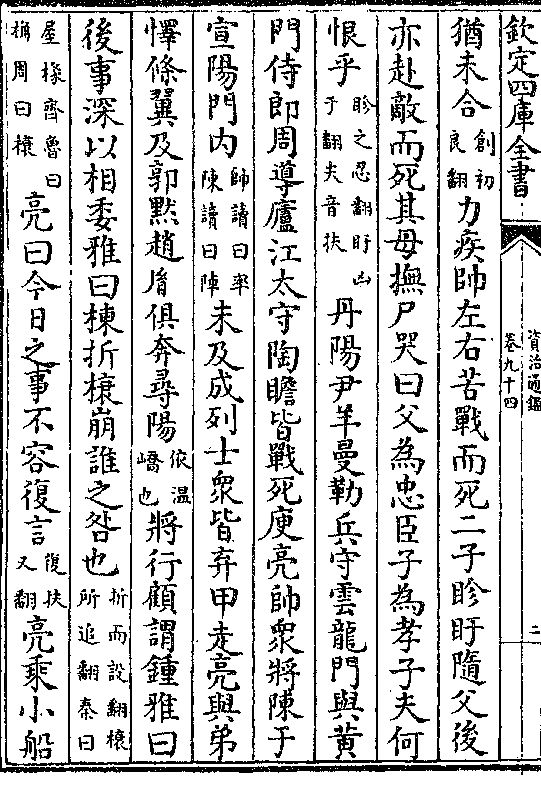 欽定四庫全書
資治通鑑
卷九十四
二
猶未合創初良翻力疾帥左右苦戰而死二子眕盱隨父後
亦赴敵而死其母撫尸哭曰父為忠臣子為孝子夫何
恨乎眕之忍翻盱凶于翻夫音扶丹陽尹羊曼勒兵守雲龍門與黃
門侍郎周導廬江太守陶瞻皆戰死庾亮帥衆將陳于
宣陽門内帥讀曰率陳讀曰陣未及成列士衆皆弃甲走亮與弟
懌條翼及郭黙趙𦙍俱奔尋陽依温嶠也將行顧謂鍾雅曰
後事深以相委雅曰棟折榱崩誰之咎也折而設翻榱所追翻秦曰
屋椽齊魯曰桷周曰榱亮曰今日之事不容復言復扶又翻亮乘小船